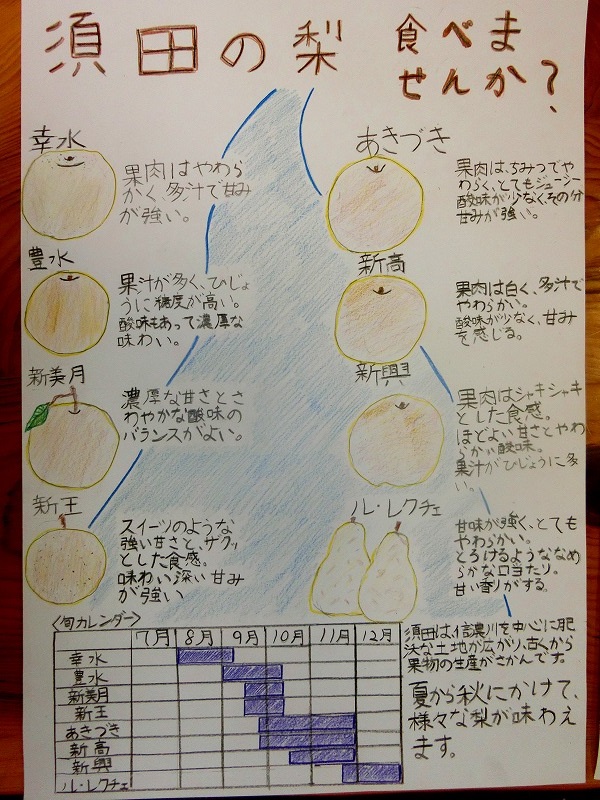 須田の梨
食べま
せんか?
幸水
果肉はやわら
かく、多汁で甘み
が強い。
豊水
果汁が多く、ひじょ
うに糖度が高い。
酸味もあって濃厚な
味わい。
新美月
濃厚な甘さとさ
わやかな酸味の
バランスがよい。
新王
スイーツのような
強い甘さと、サクッ
とした食感。
味わい深い甘み
が強い
あきづき
果肉は、ちみつでや
わらく、とてもジューシー
酸味が少なく、その分
甘みが強い。
新高
果肉は白く、多汁で
やわらかい。
酸味が少なく、甘み
を感じる。
新興
果肉はシャキシャキ
とした食感。
ほどよい甘さとやわ
らかい酸味。
果汁がひじょうに多
い。
ル・レクチェ
甘味が強く、とても
やわらかい。
とろけるようななめ
らかな口当たり。
甘い香りがする。
〈旬カレンダー〉
7月 8月 9月 10月 11月 12月
幸水
豊水
新美月
新王
あきづき
新高
新興
ル・レクチェ
須田は、信濃川を中心に肥
沃な土地が広がり、古くから
果物の生産がさかんです。
夏から秋にかけて、
様々な梨が味わえ
ます。